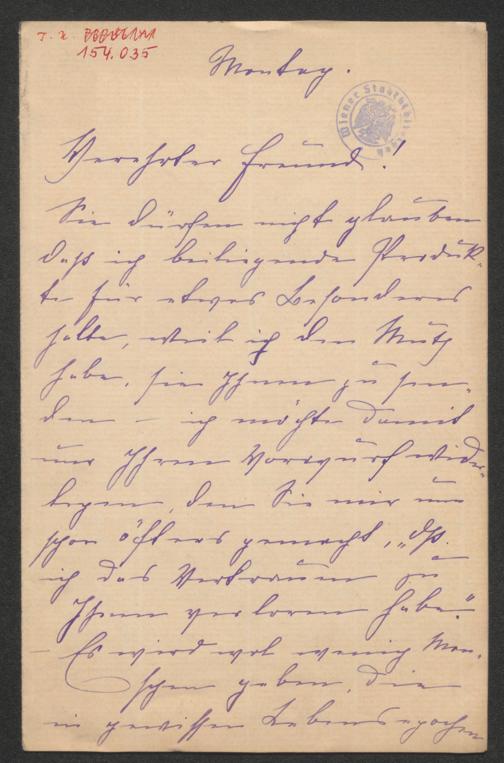 154.035
Montag.
Wiener Stadtbibliothek
Verehrter Freund!
Sie dürfen nicht glauben
daß ich beiliegende Produk-
te für etwas Besonderes
halte, weil ich den Muth
habe, sie Ihnen zu sen-
den – ich möchte damit
nur Ihren Vorwurf wider-
legen, den Sie mir nun
schon öfters gemacht, „dß.
ich das Vertrauen zu
Ihnen verloren habe."
– Es wird wol wenig Men-
schen geben, die
in gewissen Lebensepochen